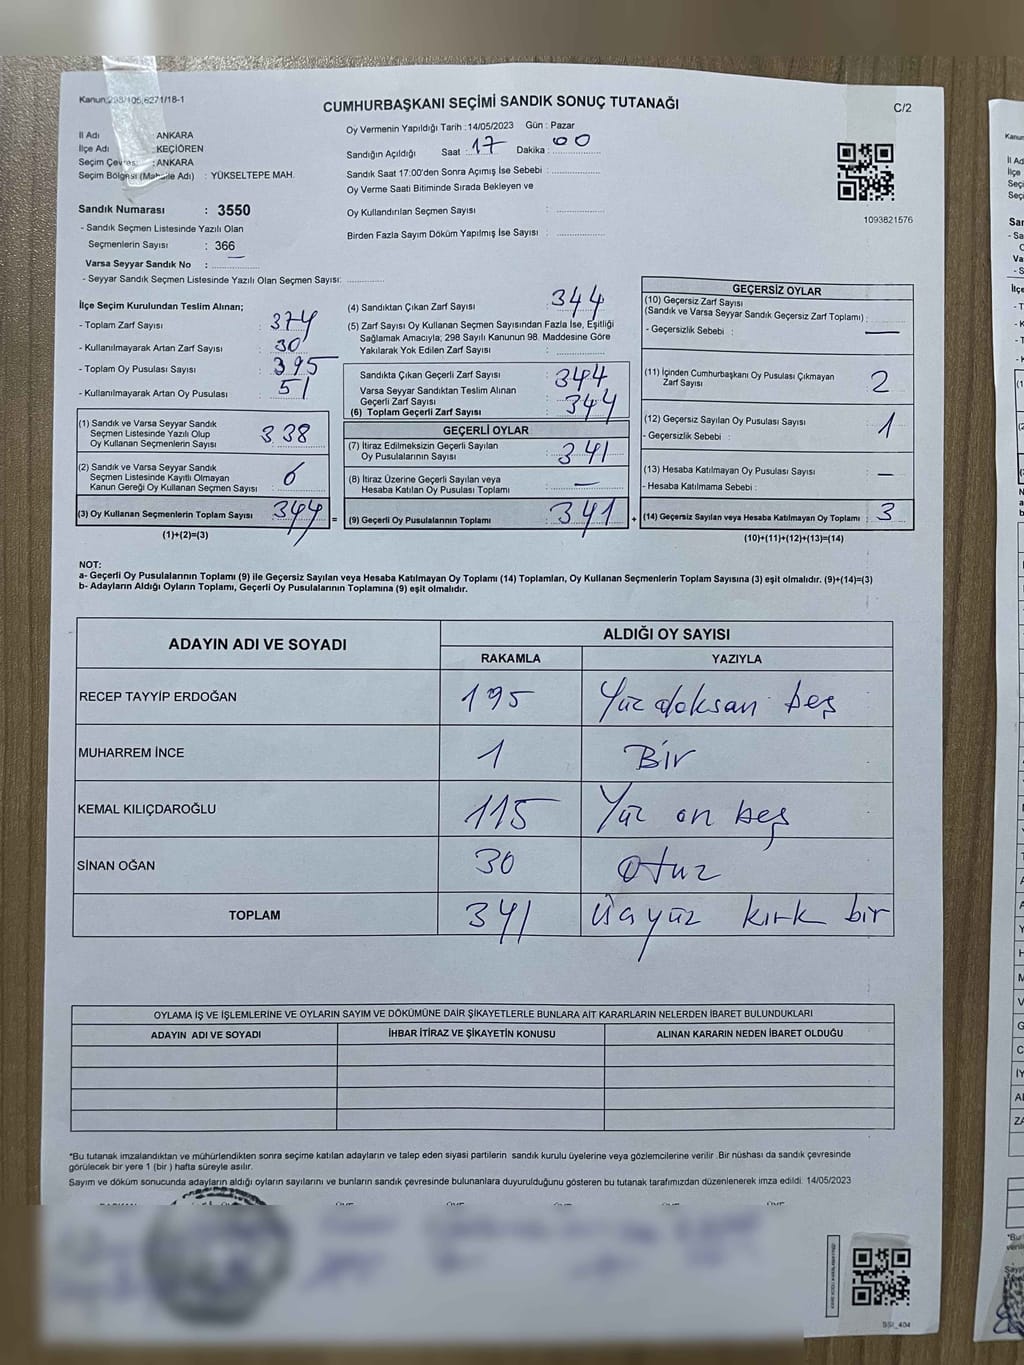 Kanun:298/105,6271/18-1
CUMHURBAŞKANI SEÇİMİ SANDIK SONUÇ TUTANAĞI
C/2
İl Adı : ANKARA
İlçe Adı : KEÇİÖREN
Seçim Çevresi : ANKARA
Seçim Bölgesi (Mahalle Adı) : YÜKSELTEPE MAH.
Sandık Numarası : 3550
- Sandık Seçmen Listesinde Yazılı Olan
Seçmenlerin Sayısı : 366
Varsa Seyyar Sandık No :
- Seyyar Sandık Seçmen Listesinde Yazılı Olan Seçmen Sayısı:
Oy Vermenin Yapıldığı Tarih :14/05/2023 Gün : Pazar
Sandığın Açıldığı Saat : 17 Dakika : 00
Sandık Saat 17.00'den Sonra Açımış İse Sebebi :
Oy Verme Saati Bitiminde Sırada Bekleyen ve
Oy Kullandırılan Seçmen Sayısı :
Birden Fazla Sayım Döküm Yapılmış İse Sayısı :
1093821576
İlçe Seçim Kurulundan Teslim Alınan;
- Toplam Zarf Sayısı : 374
- Kullanılmayarak Artan Zarf Sayısı : 30
- Toplam Oy Pusulası Sayısı : 395
- Kullanılmayarak Artan Oy Pusulası : 51
(1) Sandık ve Varsa Seyyar Sandık
Seçmen Listesinde Yazılı Olup
Oy Kullanan Seçmenlerin Sayısı : 338
(2) Sandık ve Varsa Seyyar Sandık
Seçmen Listesinde Kayıtlı Olmayan
Kanun Gereği Oy Kullanan Seçmen Sayısı : 6
(3) Oy Kullanan Seçmenlerin Toplam Sayısı : 344
(1)+(2)=(3)
(4) Sandıktan Çıkan Zarf Sayısı : 344
(5) Zarf Sayısı Oy Kullanan Seçmen Sayısından Fazla İse, Eşitliği
Sağlamak Amacıyla; 298 Sayılı Kanunun 98. Maddesine Göre
Yakılarak Yok Edilen Zarf Sayısı :
Sandıkta Çıkan Geçerli Zarf Sayısı : 344
Varsa Seyyar Sandıktan Teslim Alınan
Geçerli Zarf Sayısı :
(6) Toplam Geçerli Zarf Sayısı : 344
GEÇERLİ OYLAR
(7) İtiraz Edilmeksizin Geçerli Sayılan
Oy Pusulalarının Sayısı : 341
(8) İtiraz Üzerine Geçerli Sayılan veya
Hesaba Katılan Oy Pusulası Toplamı : —
= (9) Geçerli Oy Pusulalarının Toplamı : 341
GEÇERSİZ OYLAR
(10) Geçersiz Zarf Sayısı
(Sandık ve Varsa Seyyar Sandık Geçersiz Zarf Toplamı) :
- Geçersizlik Sebebi : —
(11) İçinden Cumhurbaşkanı Oy Pusulası Çıkmayan
Zarf Sayısı : 2
(12) Geçersiz Sayılan Oy Pusulası Sayısı : 1
- Geçersizlik Sebebi :
(13) Hesaba Katılmayan Oy Pusulası Sayısı : —
- Hesaba Katılmama Sebebi :
+ (14) Geçersiz Sayılan veya Hesaba Katılmayan Oy Toplamı : 3
(10)+(11)+(12)+(13)=(14)
NOT:
a- Geçerli Oy Pusulalarının Toplamı (9) ile Geçersiz Sayılan veya Hesaba Katılmayan Oy Toplamı (14) Toplamları, Oy Kullanan Seçmenlerin Toplam Sayısına (3) eşit olmalıdır. (9)+(14)=(3)
b- Adayların Aldığı Oyların Toplamı, Geçerli Oy Pusulalarının Toplamına (9) eşit olmalıdır.
ADAYIN ADI VE SOYADI
ALDIĞI OY SAYISI
RAKAMLA YAZIYLA
RECEP TAYYİP ERDOĞAN 195 Yüzdoksan beş
MUHARREM İNCE 1 Bir
KEMAL KILIÇDAROĞLU 115 Yüz on beş
SİNAN OĞAN 30 Otuz
TOPLAM 341 Üçyüz kırk bir
OYLAMA İŞ VE İŞLEMLERİNE VE OYLARIN SAYIM VE DÖKÜMÜNE DAİR ŞİKAYETLERLE BUNLARA AİT KARARLARIN NELERDEN İBARET BULUNDUKLARI
ADAYIN ADI VE SOYADI İHBAR İTİRAZ VE ŞİKAYETİN KONUSU ALINAN KARARIN NEDEN İBARET OLDUĞU
*Bu tutanak imzalandıktan ve mühürlendikten sonra seçime katılan adayların ve talep eden siyasi partilerin sandık kurulu üyelerine veya gözlemcilerine verilir .Bir nüshası da sandık çevresinde
görülecek bir yere 1 (bir ) hafta süreyle asılır.
Sayım ve döküm sonucunda adayların aldığı oyların sayılarını ve bunların sandık çevresinde bulunanlara duyurulduğunu gösteren bu tutanak tarafımızdan düzenlenerek imza edildi. 14/05/2023